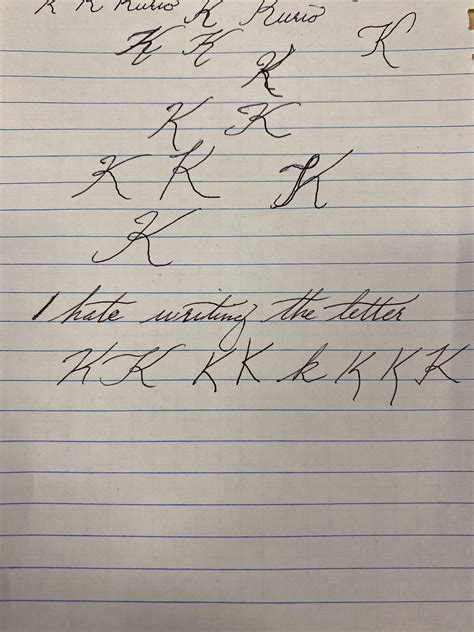 K K Kurio K Kurio
K K K
K
K K
K K K
K
I hate writing the letter
K K K K k K K K